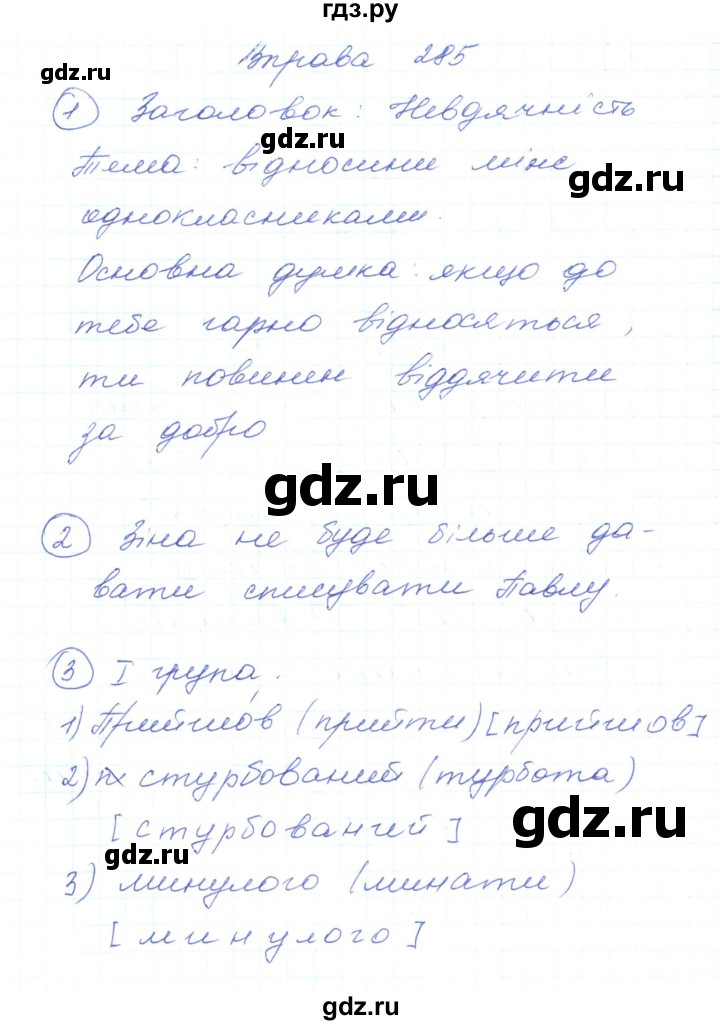 гдз.ру
Вправа 285
gdz.ru
1 Заголовок: Невдячність
gdz.ru
Тема: відносини між
gdz.ru
однокласниками.
Основна думка: якщо до
тебе гарно відносяться,
ти повинен віддячити
за добро
gdz.ru
2 Зіна не буде більше да-
вати списувати Павлу.
3 I група.
1) Прийшо́в (прийти) [прийшов]
2) стурбований (турбота)
gdz.ru
[стурбований]
gdz.ru
3) минулого (минати)
[минулого]
gdz.ru